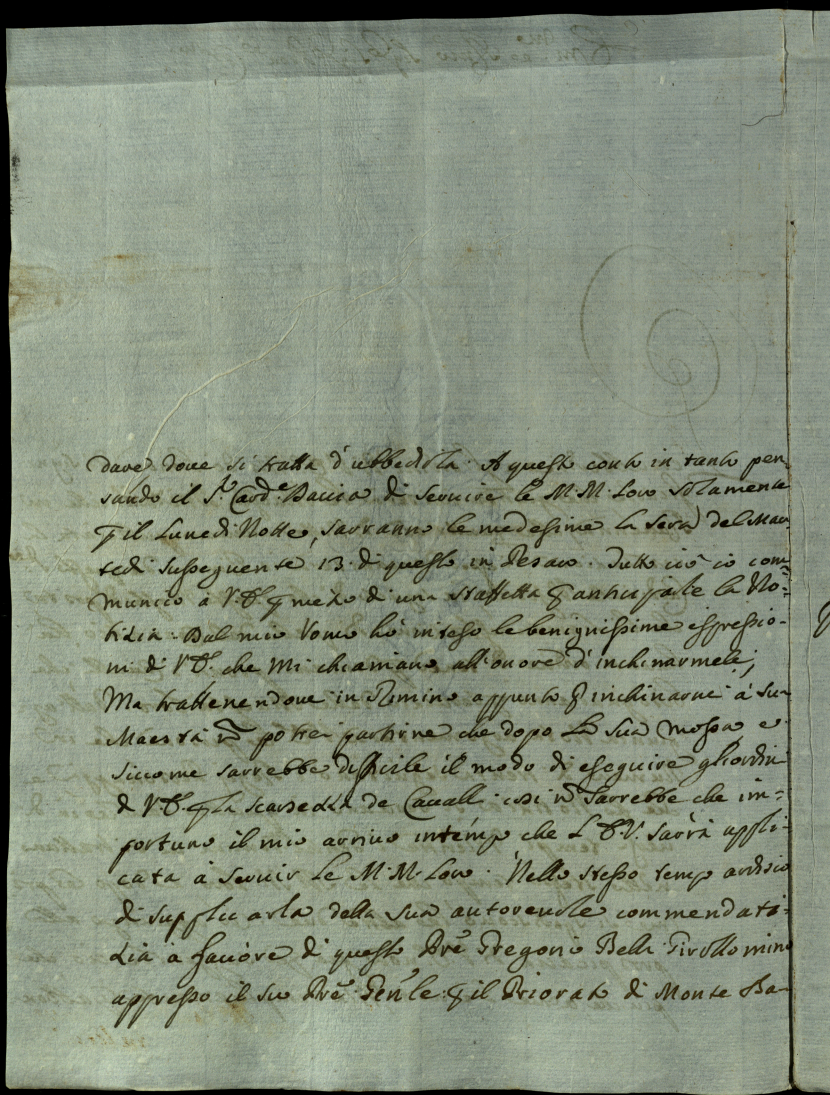 dave dove si tratta d'ubbedirla. A questo conto in tanto pen
sando il S.r Card.e Davia di servire le M.M. Loro solamente
p il Lunedì Notte, sarranno le medesime la sera del Mar
tedi susseguente 13. di questo in Pesaro. Tutto ciò io com
munico a V.E. p mezo di una staffetta p anticiparle la No=
tizia. Dal mio Uomo hò inteso le benignissime espressio-
ni di V.E. che mi chiamano all'onore d'inchinarmele;
Ma trattenendone in Rimino appunto p inchinarne à Sua
Maestà ñ potrei partirne che dopo la Sua mossa e
siccome sarrebbe difficile il modo di eseguire gli ordini
di V.E. p la scarsezza de Cavalli così ñ sarrebbe che im=
portuno il mio arrivo in tempo che L'E.V. sarrà appli=
cata à servir Le M.M. Loro. Nello stesso tempo ardisco
di supplicarla della sua autorevole commendati=
zia a favore di questo Pre Gregorio Belli Girollomino
appresso il suo Pre Gen'le p il Priorato di Monte Ba-